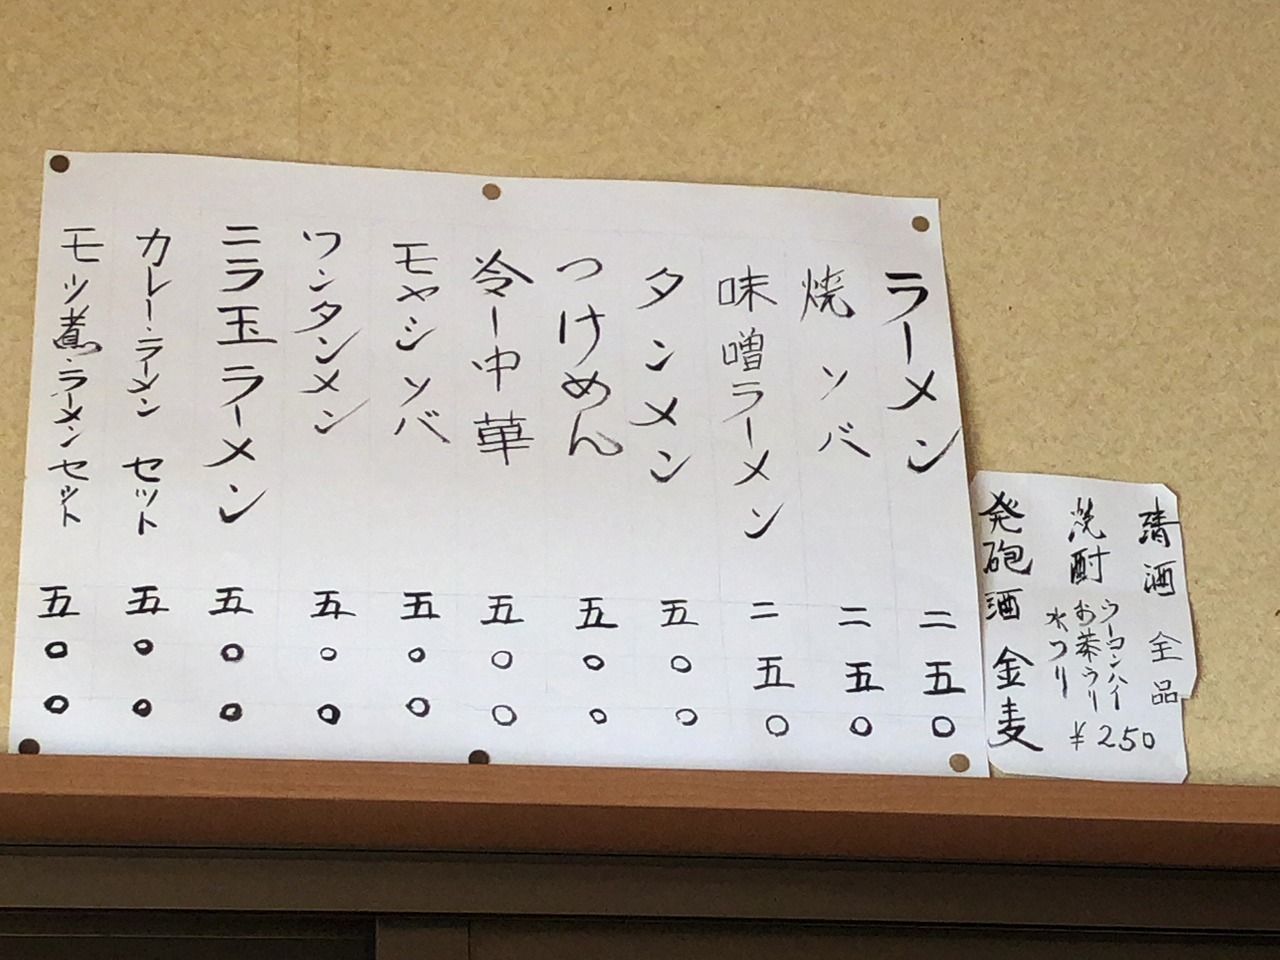 ラーメン 二五〇
焼ソバ 二五〇
味噌ラーメン 二五〇
タンメン 五〇〇
つけめん 五〇〇
冷し中華 五〇〇
モヤシソバ 五〇〇
ワンタンメン 五〇〇
ニラ玉ラーメン 五〇〇
カレー・ラーメン セット 五〇〇
モツ煮・ラーメンセット 五〇〇
清酒 全品
焼酎
ウーロンハイ
お茶ワリ
水ワリ
¥250
発砲酒 金麦